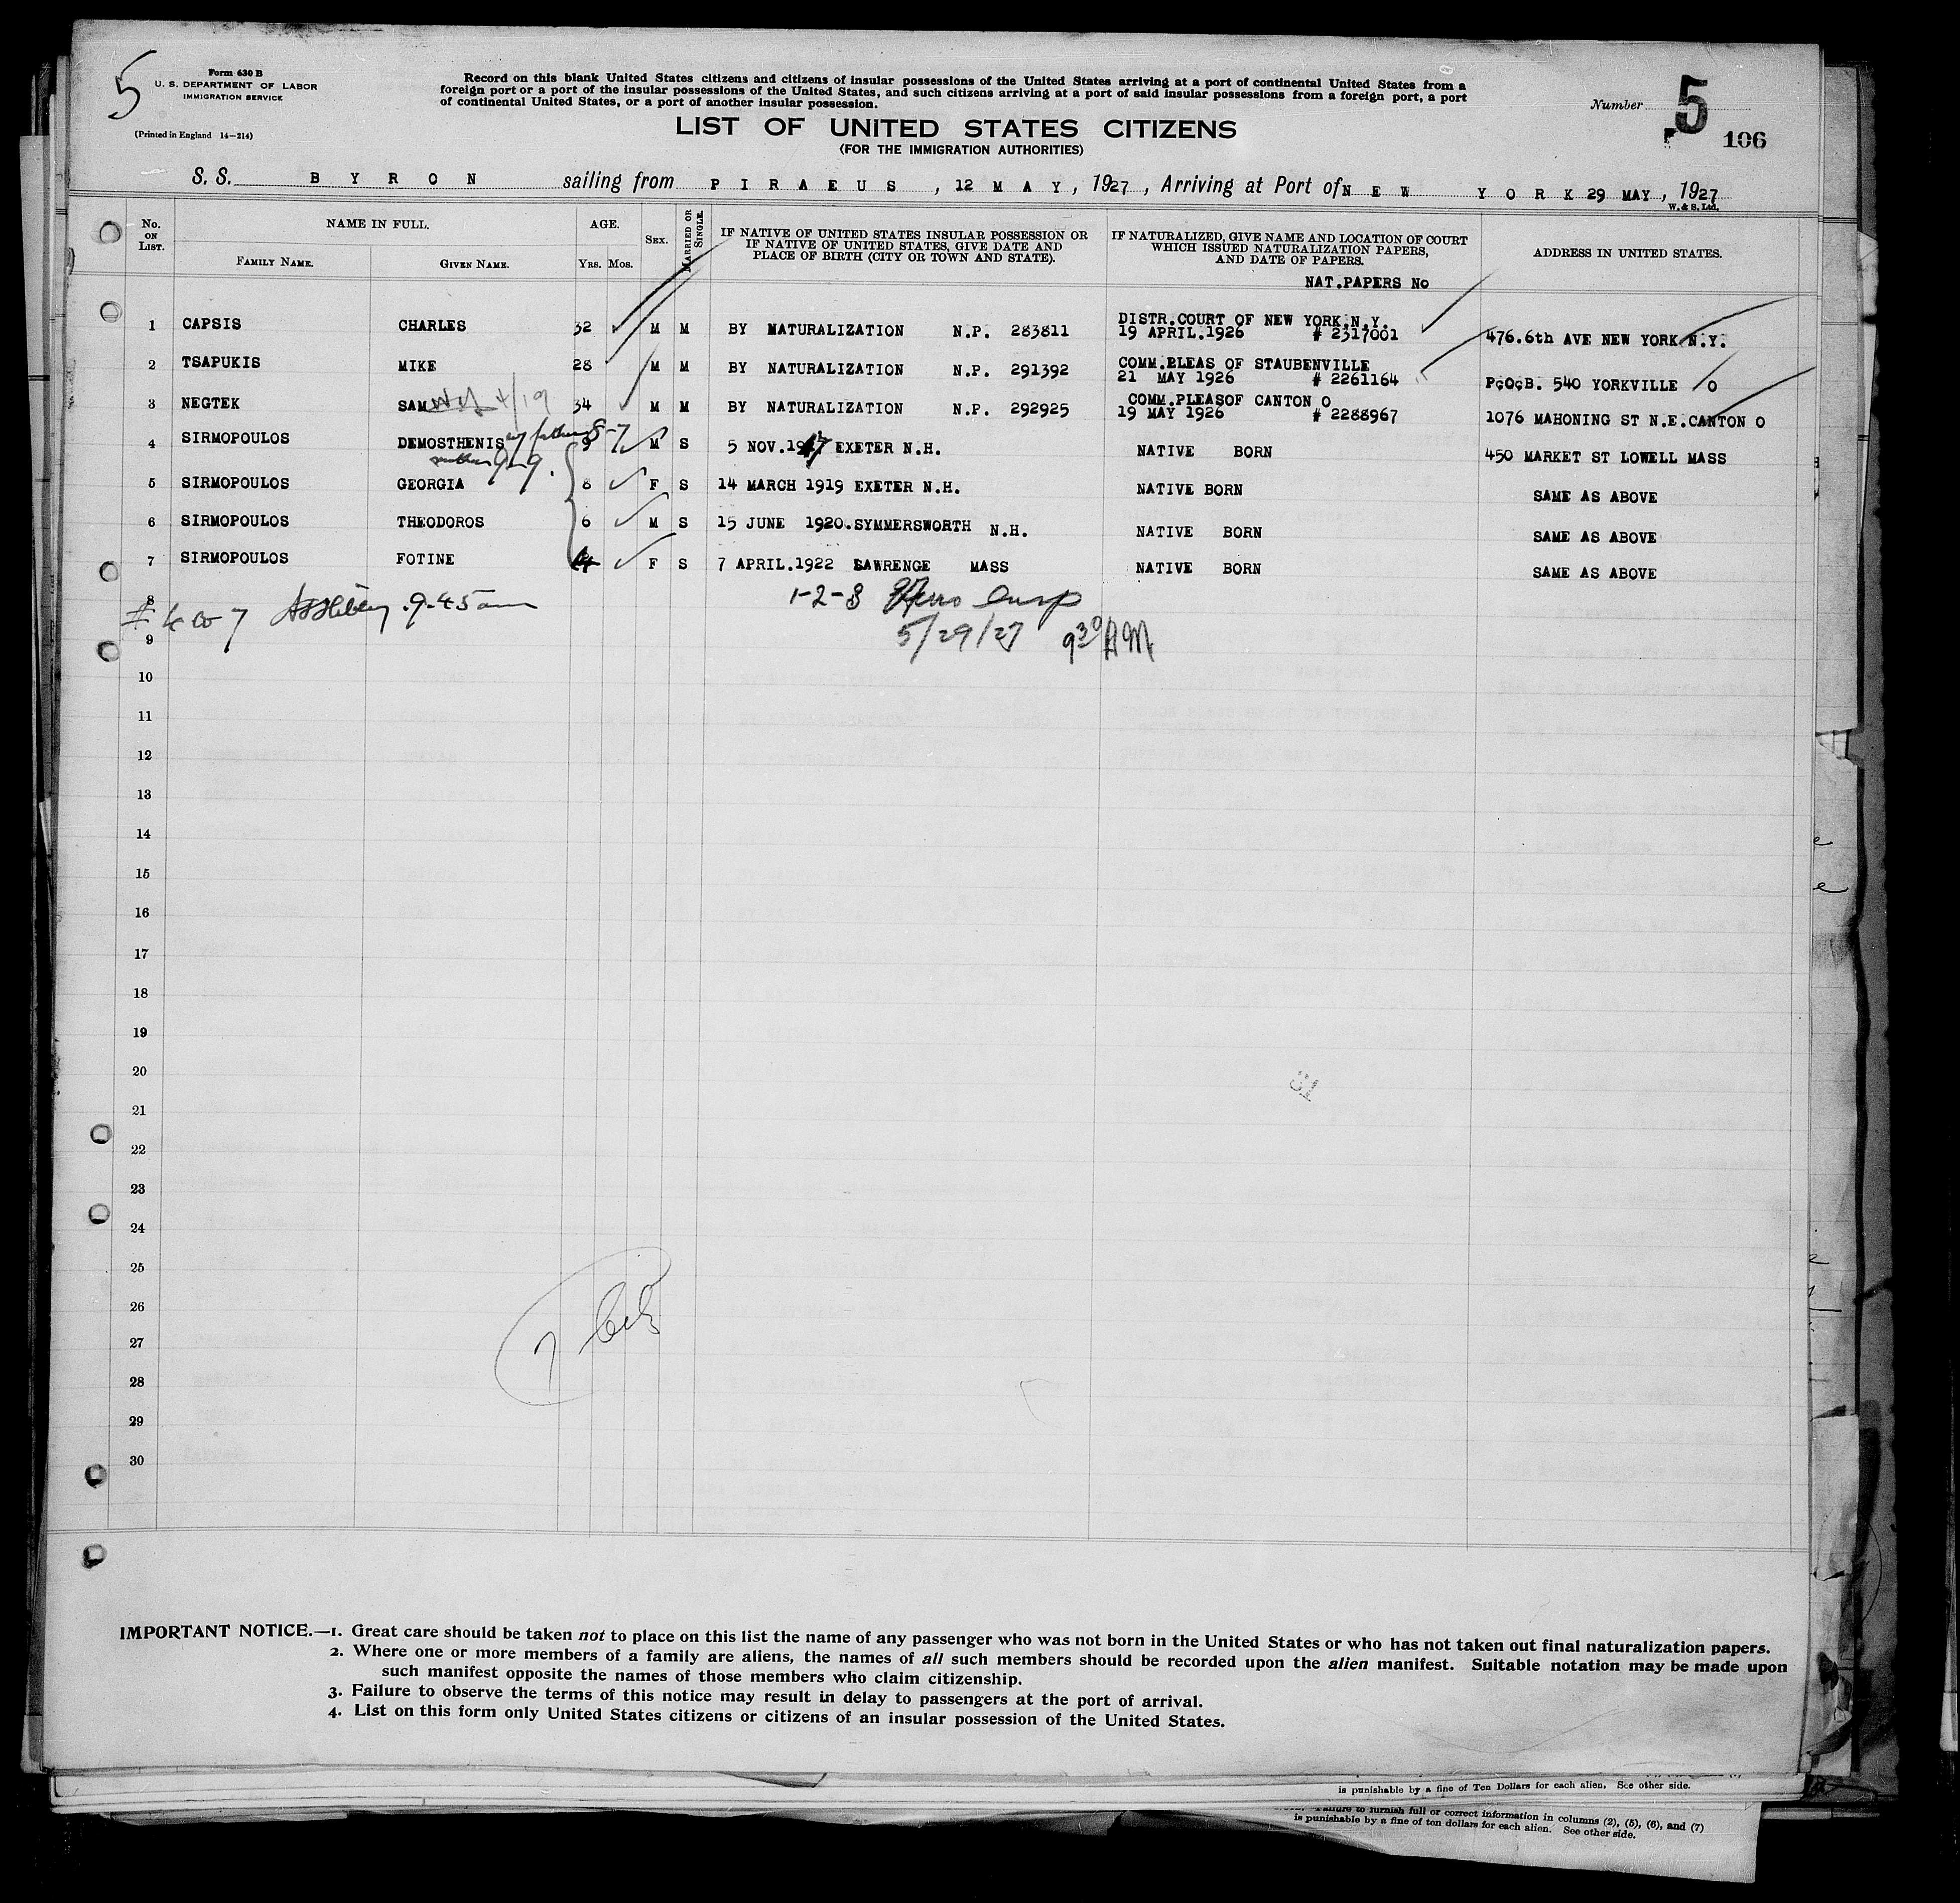 5
Form 630 B
U. S. DEPARTMENT OF LABOR
IMMIGRATION SERVICE
(Printed in England 14—214)
Record on this blank United States citizens and citizens of insular possessions of the United States arriving at a port of continental United States from a
foreign port or a port of the insular possessions of the United States, and such citizens arriving at a port of said insular possessions from a foreign port, a port
of continental United States, or a port of another insular possession.
Number 5
106
LIST OF UNITED STATES CITIZENS
(FOR THE IMMIGRATION AUTHORITIES)
S. S. BYRON sailing from PIRAEUS, 12 MAY, 1927, Arriving at Port of NEW YORK 29 MAY, 1927
W. & S. Ltd.
No. ON LIST.
NAME IN FULL.
FAMILY NAME.
GIVEN NAME.
AGE.
Yrs. Mos.
SEX.
MARRIED OR SINGLE.
IF NATIVE OF UNITED STATES INSULAR POSSESSION OR
IF NATIVE OF UNITED STATES, GIVE DATE AND
PLACE OF BIRTH (CITY OR TOWN AND STATE).
IF NATURALIZED, GIVE NAME AND LOCATION OF COURT
WHICH ISSUED NATURALIZATION PAPERS,
AND DATE OF PAPERS.
NAT.PAPERS No
ADDRESS IN UNITED STATES.
1 CAPSIS CHARLES 32 M M BY NATURALIZATION N.P. 283811 DISTR.COURT OF NEW YORK.N.Y.
19 APRIL.1926 # 2317001 476.6th AVE NEW YORK N.Y.
2 TSAPUKIS MIKE 28 M M BY NATURALIZATION N.P. 291392 COMM.PLEAS OF STAUBENVILLE
21 MAY 1926 # 2261164 P.O.B. 540 YORKVILLE O
3 NEGTEK SAM 4/19 34 M M BY NATURALIZATION N.P. 292925 COMM.PLEASOF CANTON O
19 MAY 1926 # 2288967 1076 MAHONING ST N.E.CANTON O
4 SIRMOPOULOS DEMOSTHENIS w/ father 8-7 9 M S 5 NOV.1917 EXETER N.H. NATIVE BORN 450 MARKET ST LOWELL MASS
mother 9-9.
5 SIRMOPOULOS GEORGIA 8 F S 14 MARCH 1919 EXETER N.H. NATIVE BORN SAME AS ABOVE
6 SIRMOPOULOS THEODOROS 6 M S 15 JUNE 1920.SYMMERSWORTH N.H. NATIVE BORN SAME AS ABOVE
7 SIRMOPOULOS FOTINE F S 7 APRIL.1922 LAWRENGE MASS NATIVE BORN SAME AS ABOVE
8
# 4 to 7 9-45 am
1-2-3 Insp
9
5/29/27 9 30 AM
10
11
12
13
14
15
16
17
18
19
20
21
22
23
24
25
26
27
28
29
30
7
IMPORTANT NOTICE.—1. Great care should be taken not to place on this list the name of any passenger who was not born in the United States or who has not taken out final naturalization papers.
2. Where one or more members of a family are aliens, the names of all such members should be recorded upon the alien manifest. Suitable notation may be made upon
such manifest opposite the names of those members who claim citizenship.
3. Failure to observe the terms of this notice may result in delay to passengers at the port of arrival.
4. List on this form only United States citizens or citizens of an insular possession of the United States.
is punishable by a fine of Ten Dollars for each alien. See other side.
Failure to furnish full or correct information in columns (2), (5), (6), and (7)
is punishable by a fine of ten dollars for each alien. See other side.